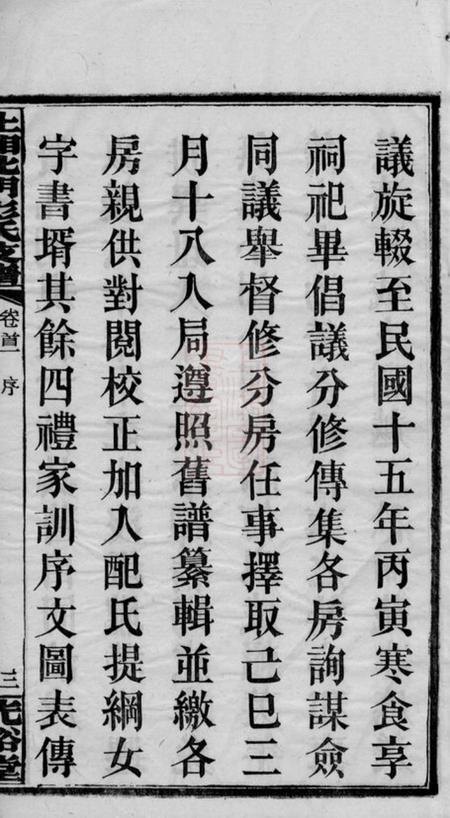 議旋輟至民國十五年丙寅寒食享
祠祀畢倡議分修傳集各房詢謀僉
同議舉督修分房任事擇取己巳三
月十八入局遵照舊譜纂輯並繳各
房親供對閱校正加入配氏提綱女
字書壻其餘四禮家訓序文圖表傳
氏支譜
卷首
序
三
光裕堂